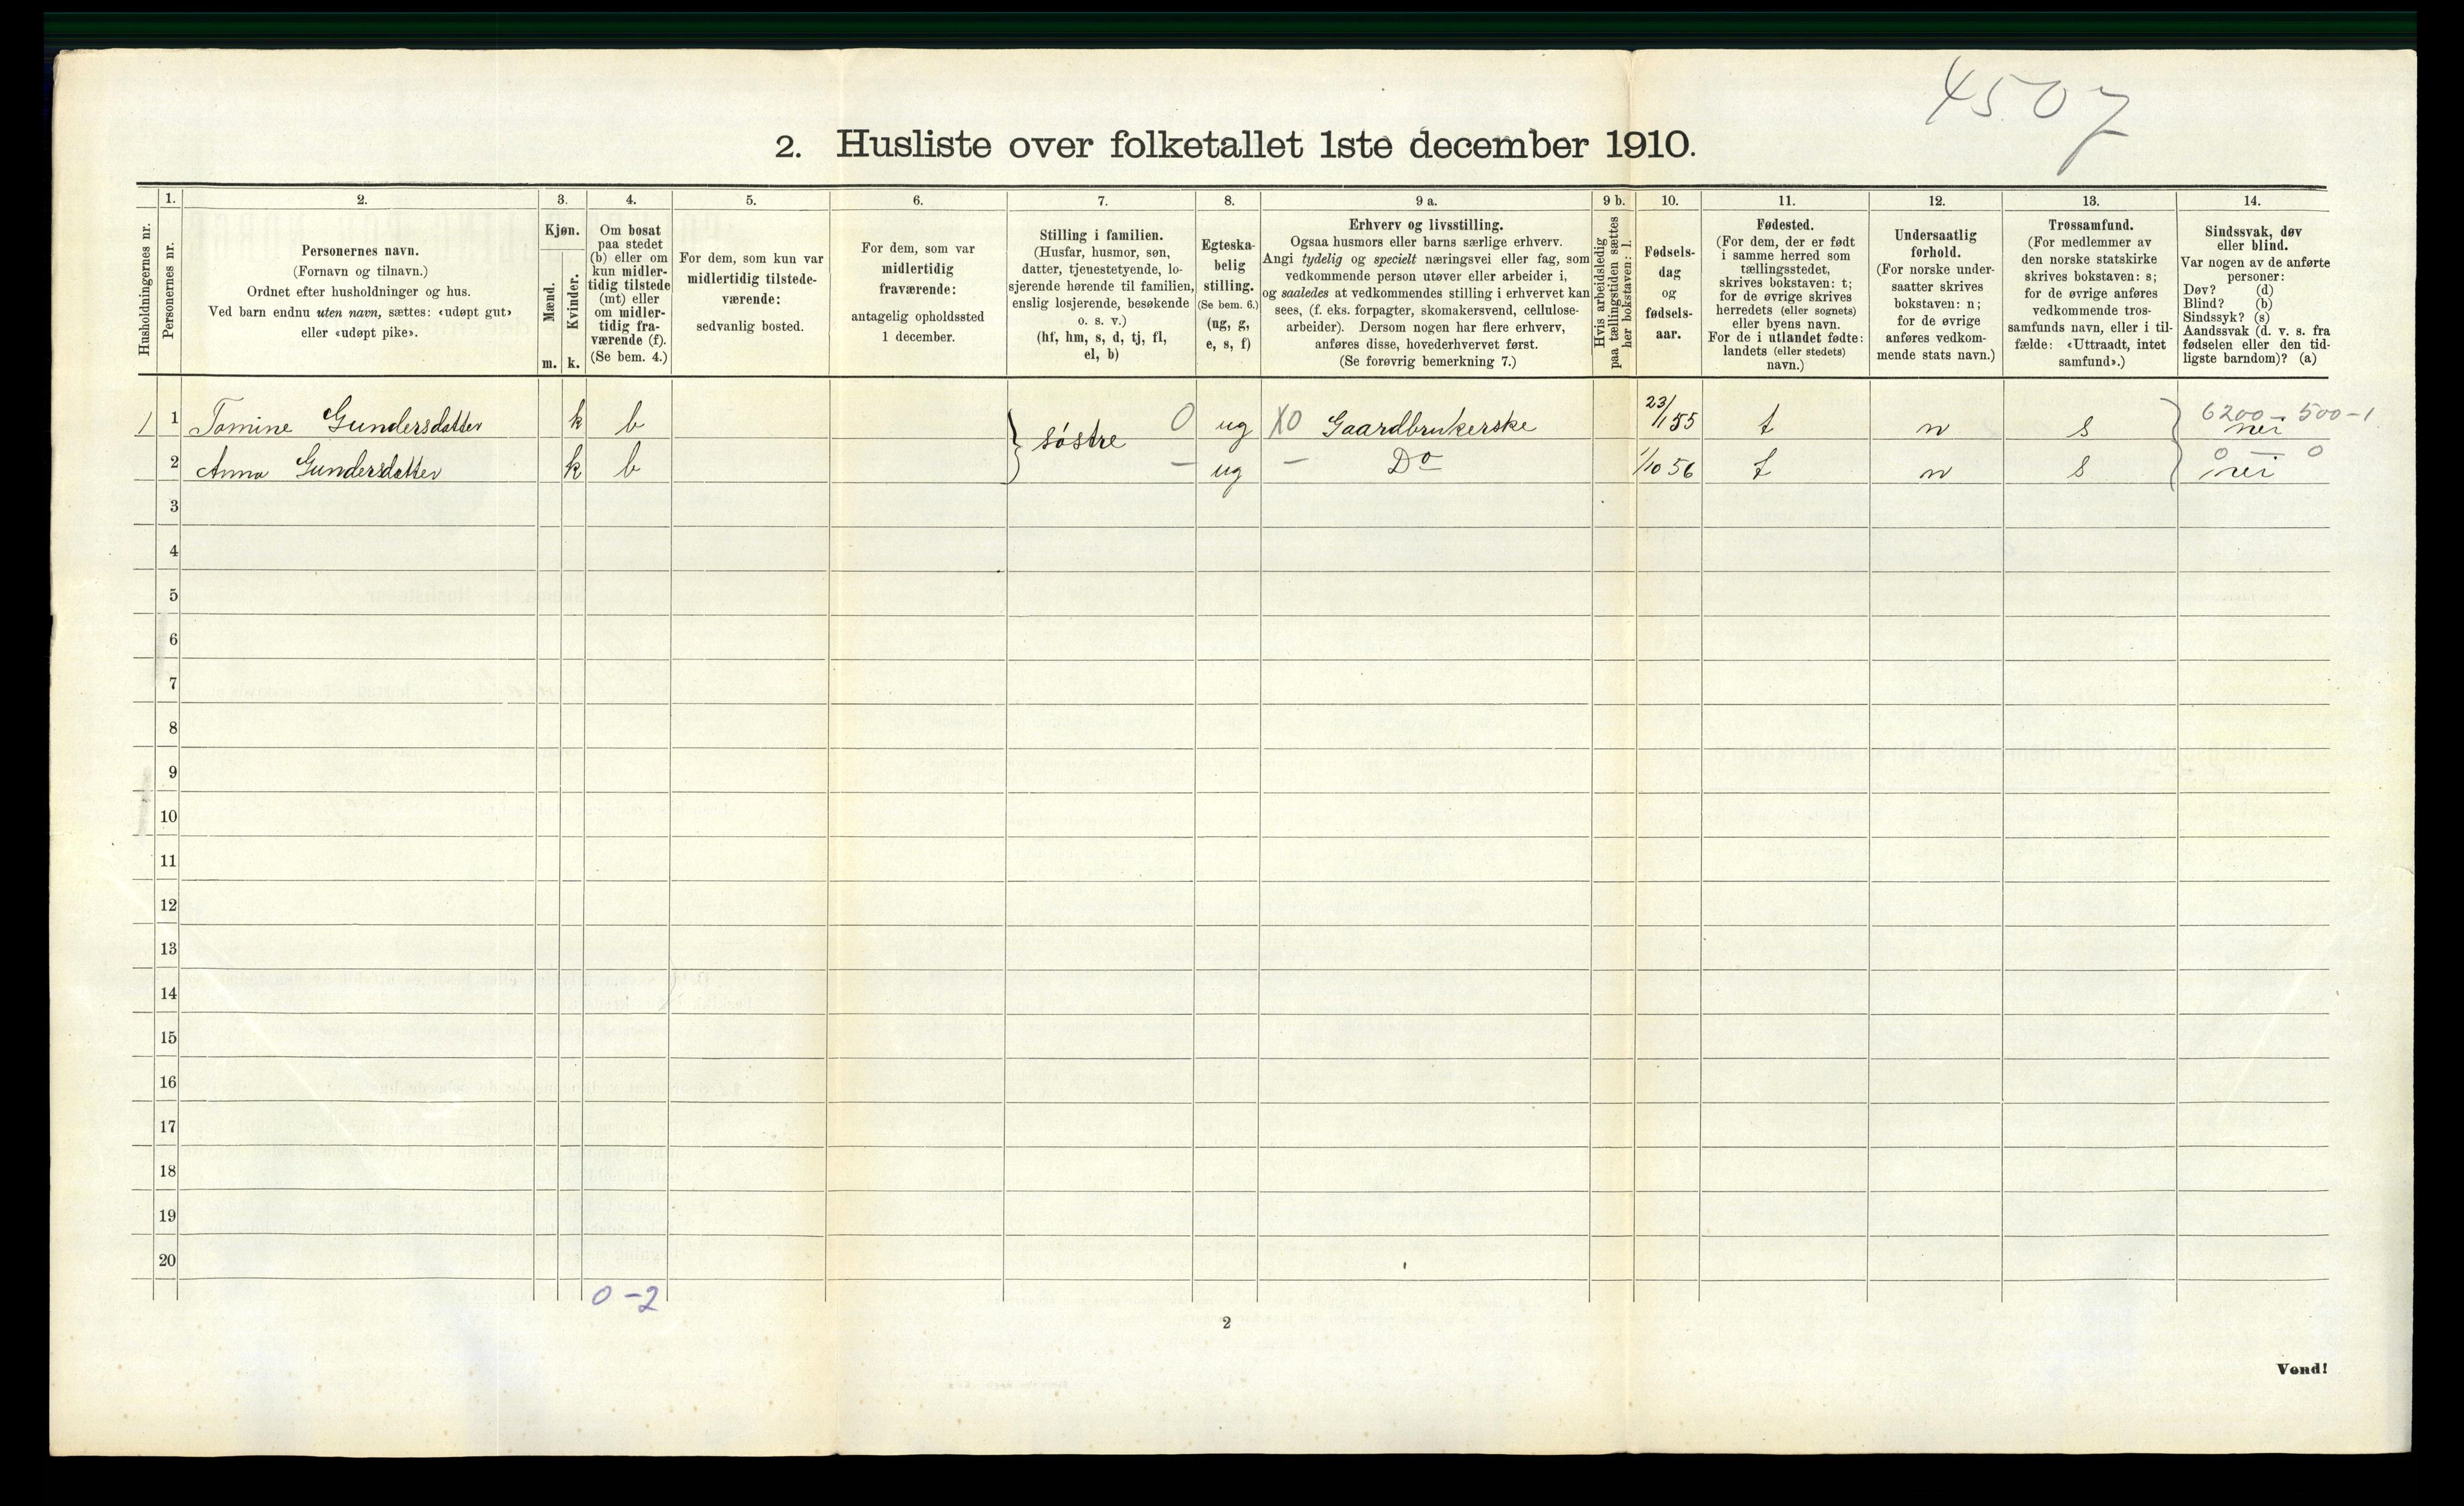 4507
2. Husliste over folketallet 1ste december 1910.
Husholdningernes nr.
1.
Personernes nr.
2.
Personernes navn.
(Fornavn og tilnavn.)
Ordnet efter husholdninger og hus.
Ved barn endnu uten navn, sættes: «udøpt gut»
eller «udøpt pike».
3.
Kjøn.
Mænd.
Kvinder.
m. k.
4.
Om bosat
paa stedet
(b) eller om
kun midler-
tidig tilstede
(mt) eller
om midler-
tidig fra-
værende (f).
(Se bem. 4.)
5.
For dem, som kun var
midlertidig tilstede-
værende:
sedvanlig bosted.
6.
For dem, som var
midlertidig
fraværende:
antagelig opholdssted
1 december.
7.
Stilling i familien.
(Husfar, husmor, søn,
datter, tjenestetyende, lo-
sjerende hørende til familien,
enslig losjerende, besøkende
o. s. v.)
(hf, hm, s, d, tj, fl,
el, b)
8.
Egteska-
belig
stilling.
(Se bem. 6.)
(ug, g,
e, s, f)
9 a.
Erhverv og livsstilling.
Ogsaa husmors eller barns særlige erhverv.
Angi tydelig og specielt næringsvei eller fag, som
vedkommende person utøver eller arbeider i,
og saaledes at vedkommendes stilling i erhvervet kan
sees, (f. eks. forpagter, skomakersvend, cellulose-
arbeider). Dersom nogen har flere erhverv,
anføres disse, hovederhvervet først.
(Se forøvrig bemerkning 7.)
9 b.
Hvis arbeidsledig
paa tællingstiden sættes
her bokstaven: l.
10.
Fødsels-
dag
og
fødsels-
aar.
11.
Fødested.
(For dem, der er født
i samme herred som
tællingsstedet,
skrives bokstaven: t;
for de øvrige skrives
herredets (eller sognets)
eller byens navn.
For de i utlandet fødte:
landets (eller stedets)
navn.)
12.
Undersaatlig
forhold.
(For norske under-
saatter skrives
bokstaven: n;
for de øvrige
anføres vedkom-
mende stats navn.)
13.
Trossamfund.
(For medlemmer av
den norske statskirke
skrives bokstaven: s;
for de øvrige anføres
vedkommende tros-
samfunds navn, eller i til-
fælde: «Uttraadt, intet
samfund».)
14.
Sindssvak, døv
eller blind.
Var nogen av de anførte
personer:
Døv? (d)
Blind? (b)
Sindssyk? (s)
Aandssvak (d. v. s. fra
fødselen eller den tid-
ligste barndom)? (a)
1 1 Tomine Gundersdatter k b } søstre 0 ug X0 Gaardbrukerske 23/1 55 t n s 6200 - 500 - 1 nei
2 Anna Gundersdatter k b - ug - Do 1/10 56 t n s 0 - 0 nei
3
4
5
6
7
8
9
10
11
12
13
14
15
16
17
18
19
20
0 - 2
2
Vend!